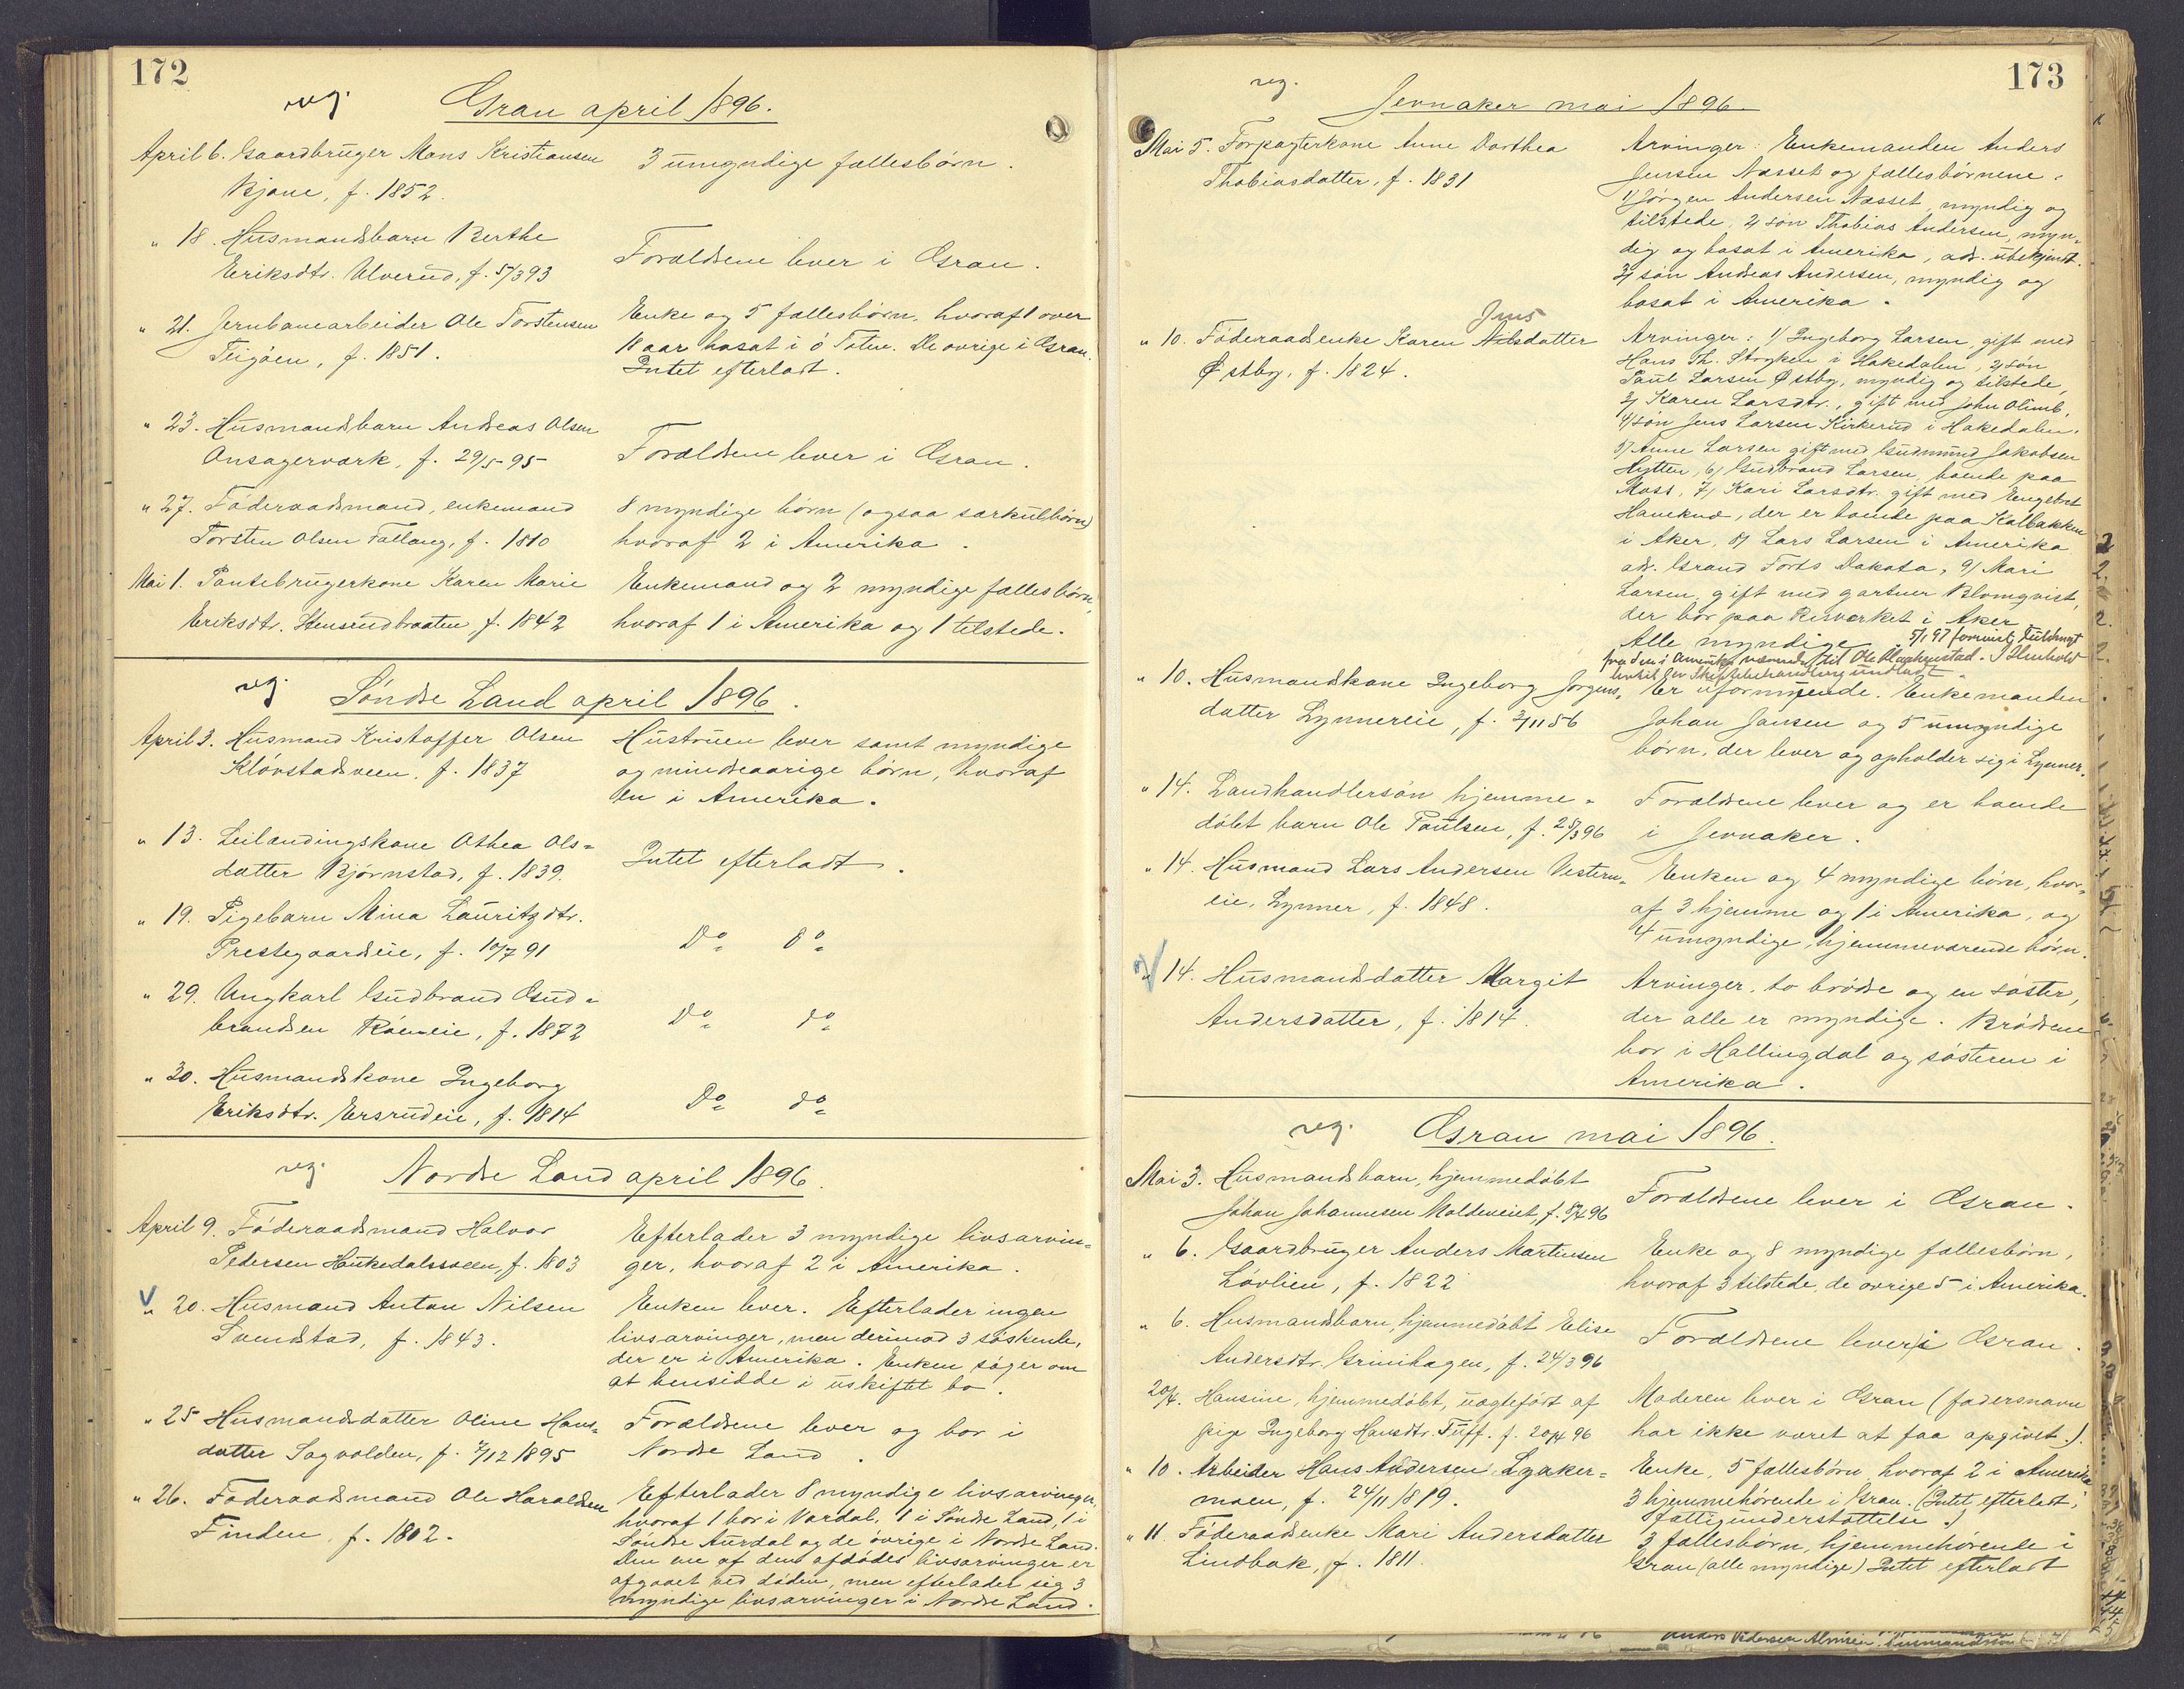 172
reg.
Gran april 1896.
April 6. Gaardbruger Mons Kristiansen
Bjone, f. 1852.
3 umyndige fællesbörn.
" 18. Husmandsbarn Berthe
Eriksdtr. Ulverud, f. 5/3 93
Forældrene lever i Gran.
" 21. Jernbanearbeider Ole Torstensen
Teigöen, f. 1851.
Enke og 5 fællesbörn, hvoraf 1 over
18 aar bosat i Ö Toten. De övrige i Gran.
Intet efterladt.
" 23. Husmandsbarn Andreas Olsen
Onsagervark, f. 29/5 95
Forældrene lever i Gran.
" 27. Föderaadsmand, enkemand
Torsten Olsen Fallang, f. 1810
8 myndige börn (ogsaa særkulbörn)
hvoraf 2 i Amerika.
Mai 1. Pantebrugerkone Karen Marie
Eriksdtr. Stensrudbraaten f. 1842
Enkemand og 2 myndige fællesbörn,
hvoraf 1 i Amerika og 1 tilstede.
reg.
Söndre Land april 1896.
April 3. Husmand Kristoffer Olsen
Klövstadsveen. f. 1837
Hustruen lever samt myndige
og mindreaarige börn, hvoraf
en i Amerika.
" 13. Leilændingskone Othea Ols-
datter Björnstad, f. 1839.
Intet efterladt.
" 19. Pigebarn Mina Lauritzdtr.
Prestegaardseie, f. 10/7 91
Do do
" 29. Ungkarl Gudbrand Gud-
brandsen Röeneie, f. 1872
Do do
" 30. Husmandskone Ingeborg
Eriksdtr. Ersrudeie, f. 1814
Do do
reg.
Nordre Land april 1896.
April 9. Föderaadsmand Halvor
Pedersen Haukedalssveen, f. 1803
Efterlader 3 myndige livsarvin-
ger, hvoraf 2 i Amerika.
" 20. Husmand Anton Nilsen
Svendstad, f. 1843.
Enken lever. Efterlader ingen
livsarvinger, men derimod 3 söskende,
der er i Amerika. Enken söger om
at hensidde i uskiftet bo.
" 25 Husmandsdatter Oline Hans-
datter Sagvolden, f. 7/12 1895
Forældrene lever og bor i
Nordre Land.
" 26. Föderaadsmand Ole Haraldsen
Finden f. 1802.
Efterlader 8 myndige livsarvinger,
hvoraf 1 bor i Vardal, 1 i Söndre Land, 1 i
Söndre Aurdal og de övrige i Nordre Land.
Den ene af den afdödes livsarvinger er
afgaaet ved döden, men efterlader sig 3
myndige livsarvinger i Nordre Land.
173
reg.
Jevnaker mai 1896.
Mai 5. Forpagterkone Anne Dorthea
Thobiasdatter, f. 1831
Arvinger: Enkemanden Anders
Jensen Næsset og fællesbörnene:
1/ Jörgen Andersen Næsset, myndig og
tilstede, 2/ sön Thobias Andersen, myn-
dig og bosat i Amerika, adr. ubekjendt.
3/ sön Andreas Andersen, myndig og
bosat i Amerika.
Jens
" 10. Föderaadsenke Karen Nilsdatter
Østby, f. 1824.
Arvinger: 1/ Ingeborg Larsen, gift med
Hans Th. Stryken i Hakedalen, 2/ sön
Paul Larsen Østby, myndig og tilstede,
3/ Karen Larsdtr., gift med John Olimb,
4/ sön Jens Larsen Kirkerud i Hakedalen,
5/ Anne Larsen gift med Gudmund Jakobsen
Hytten, 6/ Gudbrand Larsen, boende paa
Moss, 7/ Kari Larsdtr. gift med Engebret
Haneknæ, der er boende paa Kalbakken
i Aker, 8/ Lars Larsen i Amerika
adr. Grand Forks Dakota, 9/ Mari
Larsen, gift med gartner Blomqvist,
der bor paa Risverket i Aker
Alle myndige. 5/1 97 forevist fuldmagt
fra den i Amerika værende til Ole Klækenstad. I Henhold
hertil er Skiftebehandling undladt
" 10. Husmandskone Ingeborg Jörgens-
datter Lynnereie, f. 3/11 56
Er uformuende. Enkemanden
Johan Jansen og 5 umyndige
börn, der lever og opholder sig i Lynner.
" 14. Landhandlersön hjemme-
döbt barn Ole Paulsen, f. 25/3 96
Forældrene lever og er boende
i Jevnaker.
" 14. Husmand Lars Andersen Vestern-
eie, Lynner, f. 1848.
Enken og 4 myndige börn, hvor-
af 3 hjemme og 1 i Amerika, og
4 umyndige, hjemmeværende börn.
" 14. Husmandsdatter Margit
Andersdatter, f. 1814.
Arvinger, to brödre og en söster,
der alle er myndige. Brödrene
bor i Hallingdal og sösteren i
Amerika.
reg.
Gran mai 1896.
Mai 3. Husmandsbarn, hjemmedöbt
Johan Johannesen Moldeneiet, f. 8/4 96
Forældrene lever i Gran.
" 6. Gaardbruger Anders Martinsen
Lövlien, f. 1822
Enke og 8 myndige fællesbörn,
hvoraf 3 tilstede, de övrige 5 i Amerika.
" 6. Husmandsbarn, hjemmedöbt Elise
Andersdtr. Grinihagen, f. 24/3 96
Forældrene lever i Gran.
20/4. Hansine, hjemmedöbt, uægteföst af
pige Ingeborg Hansdtr. Tuff. f. 20/4 96
Moderen lever i Gran (fadersnavn
har ikke været at faa opgivet.).
" 10. Arbeider Hans Andersen Lyaker-
moen, f. 24/11 1819.
Enke, 5 fællesbörn, hvoraf 2 i Amerika
3 hjemmehörende i Gran. (Intet efterladt,
fattigunderstöttelse.)
" 11. Föderaadsenke Mari Andersdatter
Lindbak, f. 1811.
3 fællesbörn, hjemmehörende i
Gran (alle myndige) Intet efterladt